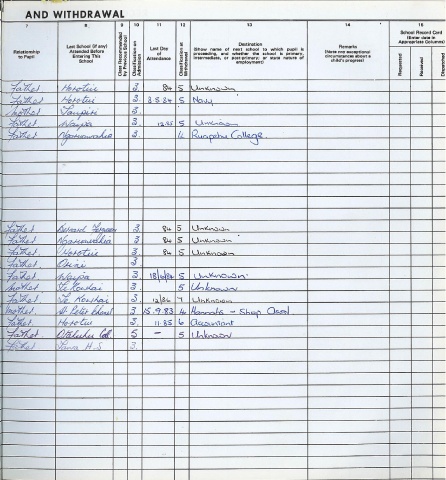 AND WITHDRAWAL
7 8 9 10 11 12 13 14 15
Relationship to Pupil
Last School (if any) Attended Before Entering This School
Class Recommended by Previous School
Classification on Admission
Last Day of Attendance
Classification on Withdrawal
Destination
(Show name of next school to which pupil is proceeding, and whether the school is primary, intermediate, or post-primary; or state nature of employment)
Remarks
(Note any exceptional circumstances about a child's progress)
School Record Card
(Enter date in Appropriate Columns)
Requested
Received
Father Horotiu 3 84 5 Unknown
Father Horotiu 3 3.5.84 5 Navy
Mother 3
Father Waipa 3 12.85 5 Unknown
Father Ngaruawahia 3 College
Father Bernard 3 84 5 Unknown
Father Ngaruawahia 3 84 5 Unknown
Father Horotiu 3 84 5 Unknown
Father 3
Father Waipa 3 84 5 Unknown
Mother Te Kowhai 3 5 Unknown
Father Te Kowhai 3 12/86 7 Unknown
Mother St Peter 3 15.9.83 4 Hannahs - Shop
Father Horotiu 3 11.85 6 Accountant
Father 5 - 5 Unknown
Father H.S 3